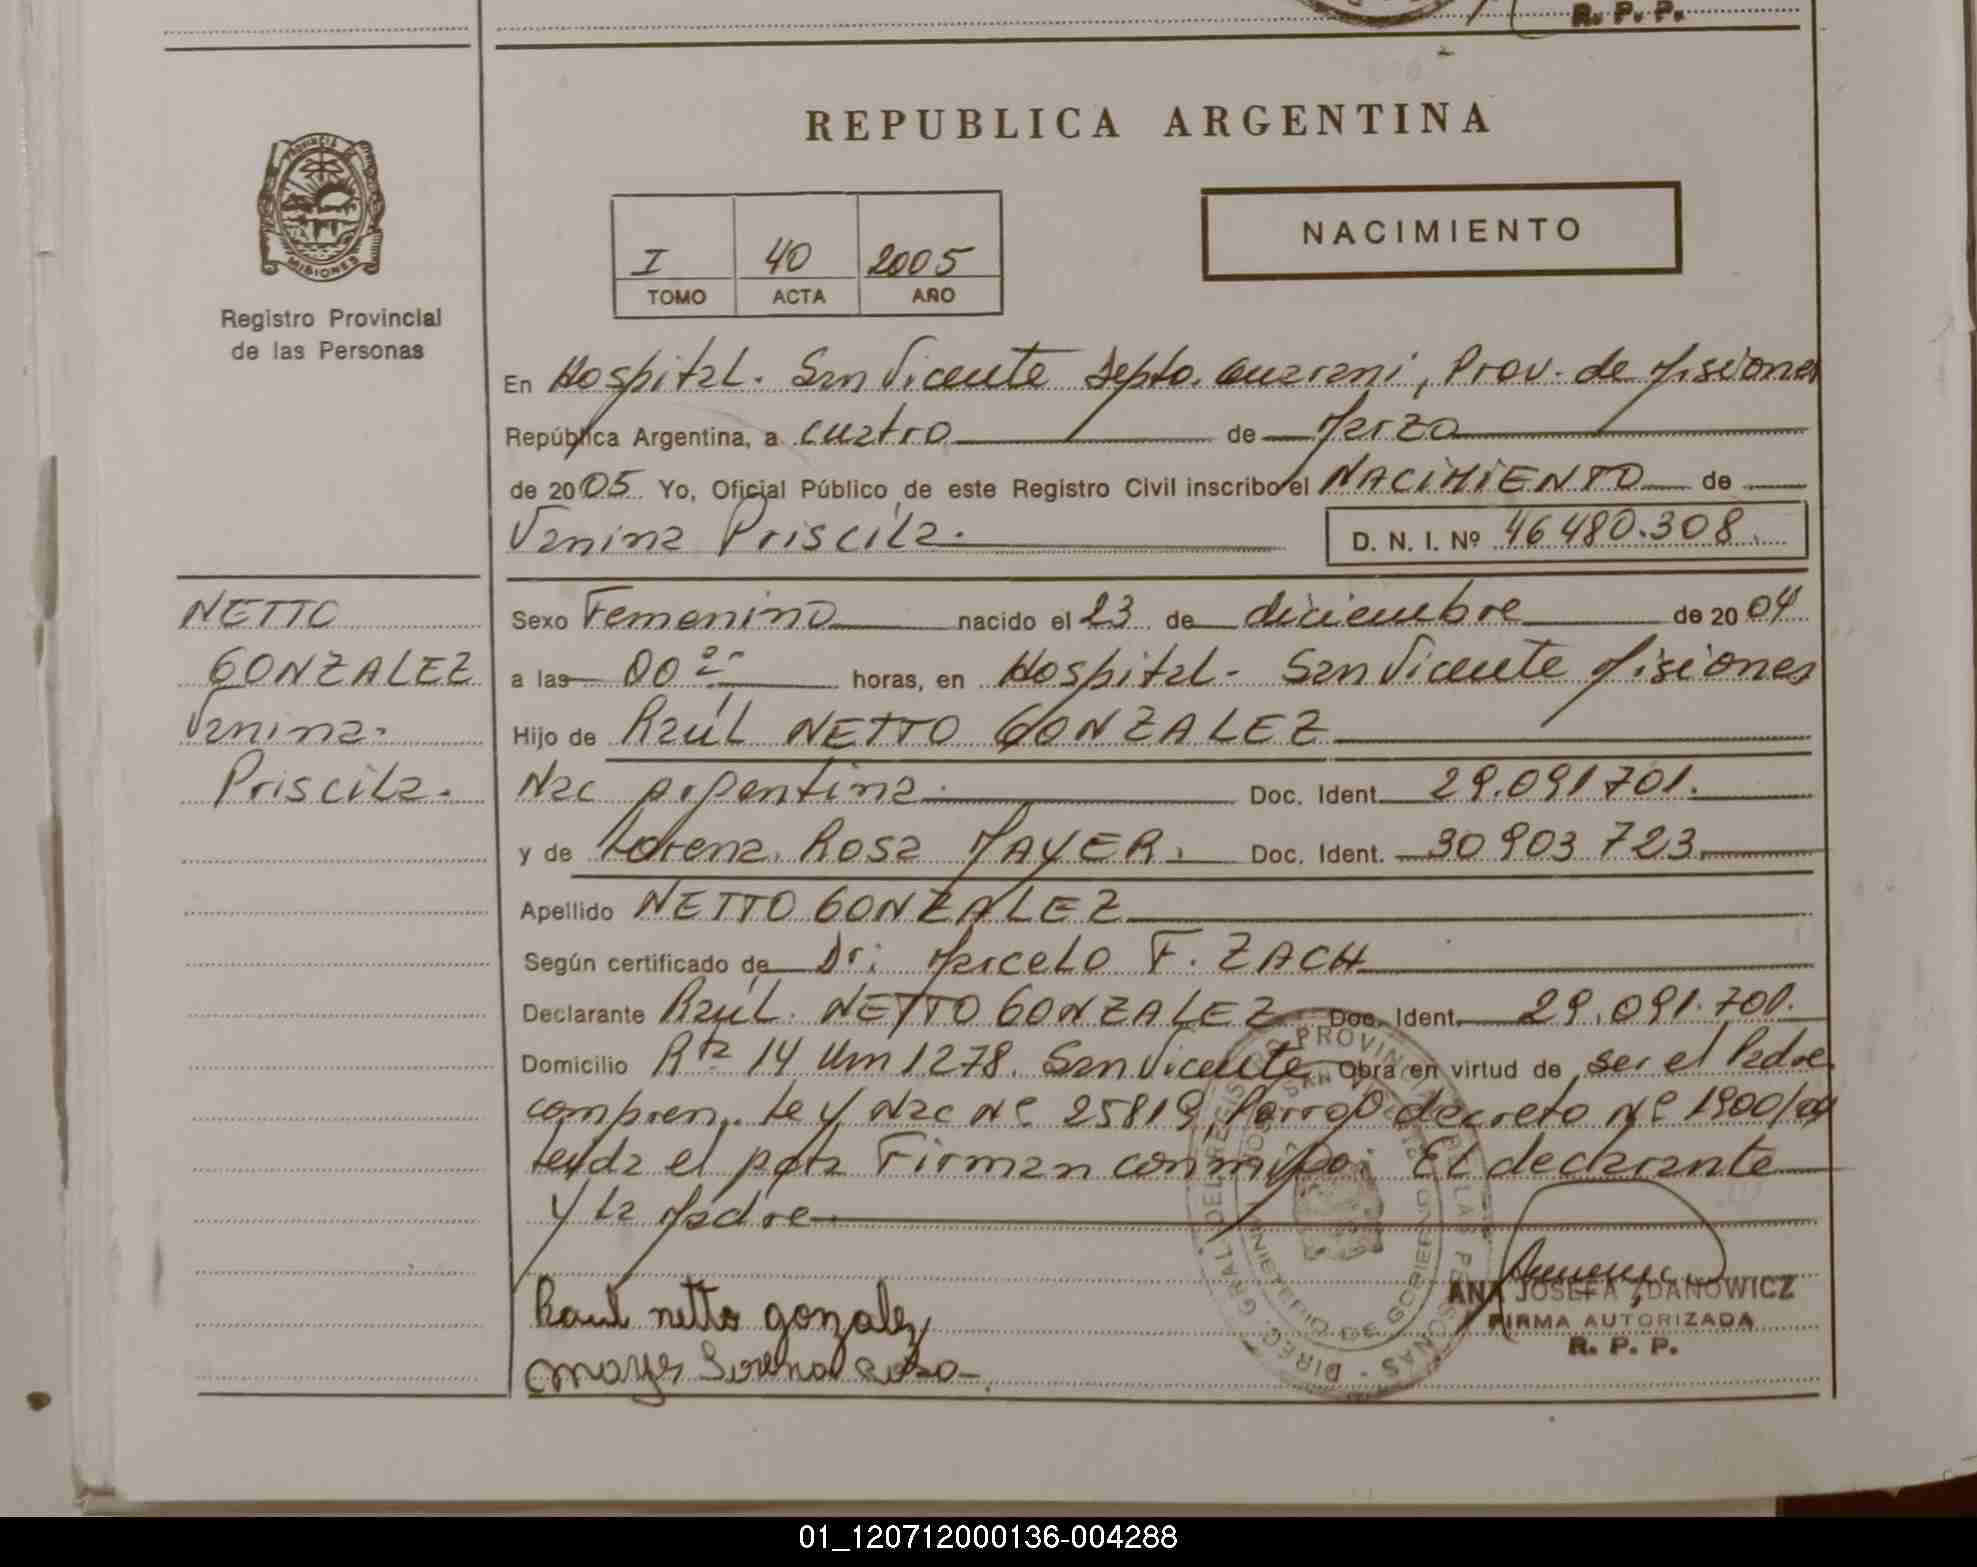 R. P. P.
REPUBLICA ARGENTINA
NACIMIENTO
I 40 2005
TOMO ACTA AÑO
PROVINCIA DE
MISIONES
Registro Provincial
de las Personas
En Hospital. San Vicente Depto. Guarani, Prov. de Misiones
República Argentina, a cuatro de Marzo
de 2005 Yo, Oficial Público de este Registro Civil inscribo el NACIMIENTO de
Vanina Priscila. D. N. I. Nº 46480.308.
NETTO
GONZALEZ
Vanina.
Priscila.
Sexo Femenino nacido el 23 de diciembre de 2004
a las 00 horas, en Hospital - San Vicente Misiones
Hijo de Raúl NETTO GONZALEZ
Nac argentina. Doc. Ident. 29.091701.
y de Lorena Rosa MAYER. Doc. Ident. 30903723
Apellido NETTO GONZALEZ
Según certificado de Dr: Marcelo F. ZACH
Declarante Raúl. NETTO GONZALEZ Doc. Ident. 29.091.701.
Domicilio Rta 14 Km 1278. San Vicente Obra en virtud de ser el Padre
compren. te y Nac Nº 25819, Porrogo decreto Nº 1900/04
Leida el acta Firman conmigo: El declarante
y la Madre
Raul netto gonzalez
mayer Lorena Rosa
ANA JOSEFA ZDANOWICZ
FIRMA AUTORIZADA
R. P. P.
DIREC. GRAL. DEL REGISTRO PROVINCIAL DE LAS PERSONAS
MINISTERIO DE GOBIERNO
SAN VICENTE
01_120712000136-004288